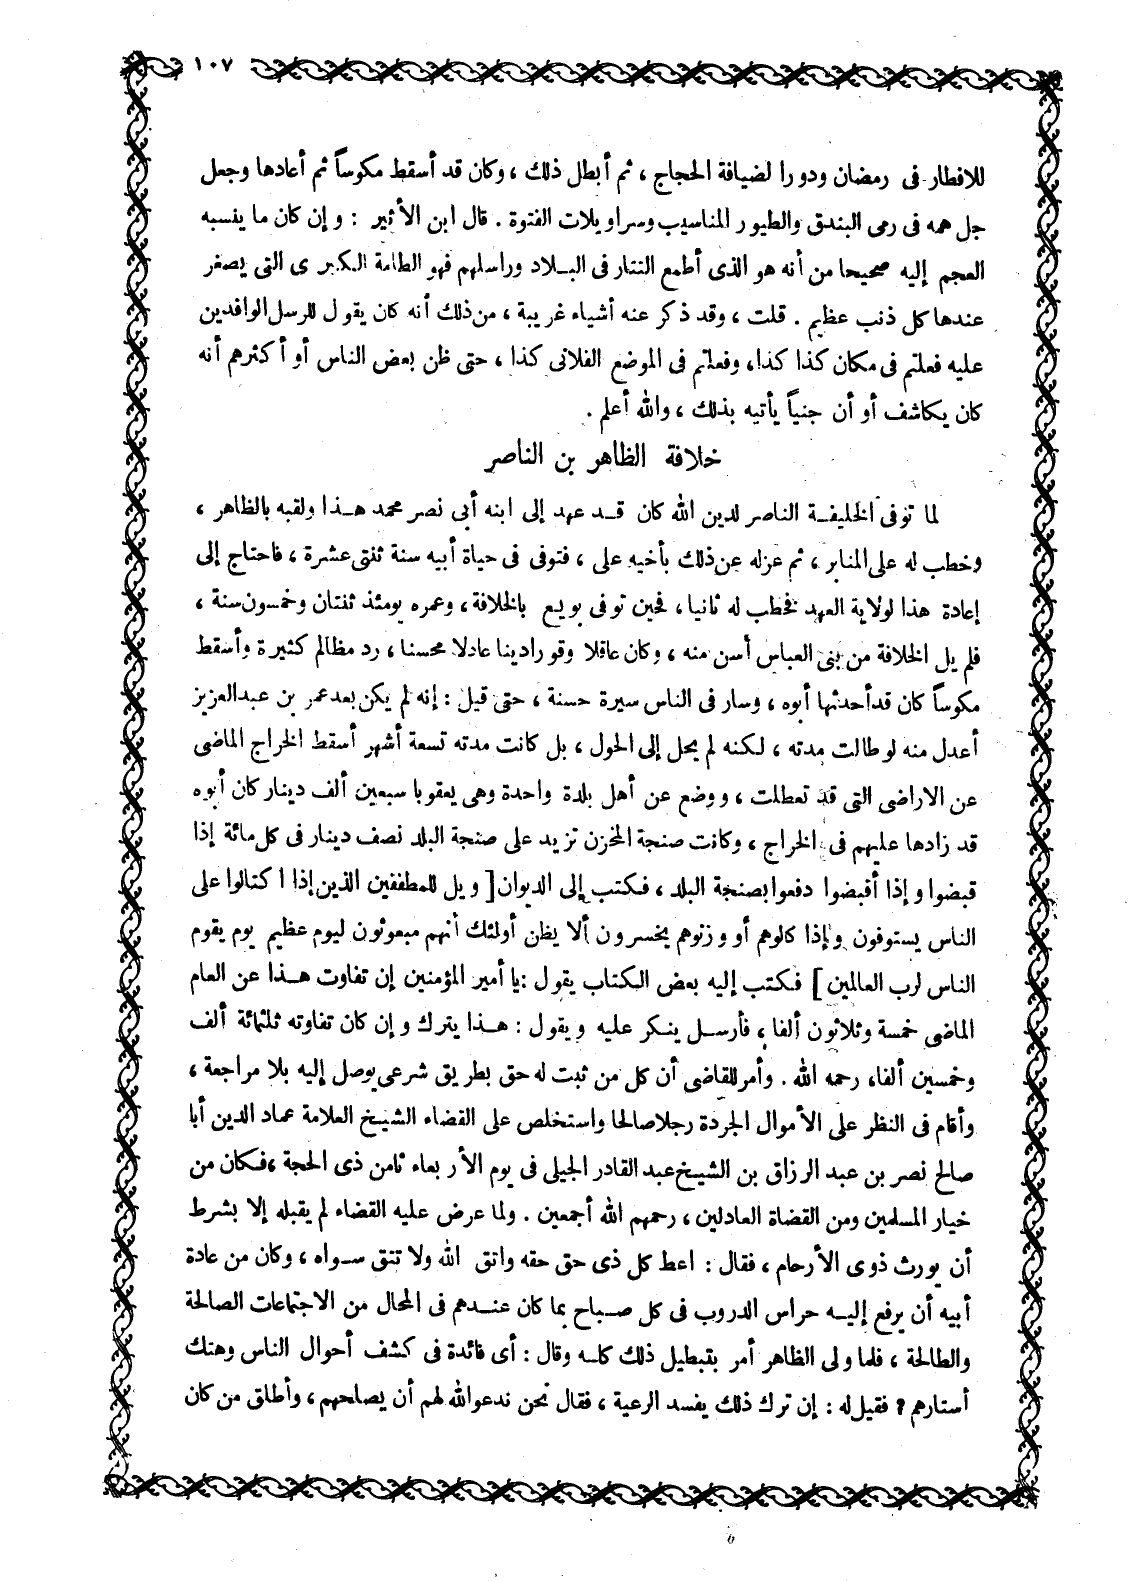 ١٠٧
للافطار فى رمضان ودورا لضيافة الحجاج ، ثم أبطل ذلك ، وكان قد أسقط مكوساً ثم أعادها وجعل
جل همه فى رمى البندق والطيور المناسيب وسراويلات الفتوة . قال ابن الأثير : وإن كان ما ينسبه
العجم إليه صحيحا من أنه هو الذى أطمع التتار فى البلاد وراسلهم فهو الطامة الكبرى التى يصغر
عندها كل ذنب عظيم . قلت ، وقد ذكر عنه أشياء غريبة ، من ذلك أنه كان يقول للرسل الوافدين
عليه فعلتم فى مكان كذا كذا، وفعلتم فى الموضع الفلانى كذا ، حتى ظن بعض الناس أو أكثرهم أنه
كان يكاشف أو أن جنياً يأتيه بذلك ، والله أعلم .
خلافة الظاهر بن الناصر
لما توفى الخليفة الناصر لدين الله كان قد عهد إلى ابنه أبى نصر محمد هذا ولقبه بالظاهر ،
وخطب له على المنابر ، ثم عزله عن ذلك بأخيه على ، فتوفى فى حياة أبيه سنة ثنتى عشرة ، فاحتاج إلى
إعادة هذا لولاية العهد فخطب له ثانيا ، فحين توفى بويع بالخلافة ، وعمره يومئذ ثنتان وخمسون سنة ،
فلم يل الخلافة من بنى العباس أسن منه ، وكان عاقلا وقورا دينا عادلا محسنا ، رد مظالم كثيرة وأسقط
مكوساً كان قد أحدثها أبوه ، وسار فى الناس سيرة حسنة ، حتى قيل : إنه لم يكن بعد عمر بن عبد العزيز
أعدل منه لو طالت مدته ، لكنه لم يحل إلى الحول ، بل كانت مدته تسعة أشهر أسقط الخراج الماضى
عن الاراضى التى قد تعطلت ، ووضع عن أهل بلدة واحدة وهى يعقوبا سبعين ألف دينار كان أبوه
قد زادها عليهم فى الخراج ، وكانت صنجة المخزن تزيد على صنجة البلد نصف دينار فى كل مائة إذا
قبضوا وإذا أقبضوا دفعوا بصنجة البلد ، فكتب إلى الديوان [ ويل للمطففين الذين إذا اكتالوا على
الناس يستوفون وإذا كالوهم أو وزنوهم يخسرون ألا يظن أولئك أنهم مبعوثون ليوم عظيم يوم يقوم
الناس لرب العالمين ] فكتب إليه بعض الكتاب يقول : يا أمير المؤمنين إن تفاوت هذا عن العام
الماضى خمسة وثلاثون ألفا ، فأرسل ينكر عليه ويقول : هذا يترك وإن كان تفاوته ثلثمائة ألف
وخمسين ألفا، رحمه الله . وأمر للقاضى أن كل من ثبت له حق بطريق شرعى يوصل إليه بلا مراجعة ،
وأقام فى النظر على الأموال الجردة رجلا صالحا واستخلص على القضاء الشيخ العلامة عماد الدين أبا
صالح نصر بن عبد الرزاق بن الشيخ عبد القادر الجيلى فى يوم الأربعاء ثامن ذى الحجة ، فكان من
خيار المسلمين ومن القضاة العادلين ، رحمهم الله أجمعين . ولما عرض عليه القضاء لم يقبله إلا بشرط
أن يورث ذوى الأرحام ، فقال : اعط كل ذى حق حقه واتق الله ولا تتق سواه ، وكان من عادة
أبيه أن يرفع إليه حراس الدروب فى كل صباح بما كان عندهم فى المحال من الاجتماعات الصالحة
والطالحة ، فلما ولى الظاهر أمر بتبطيل ذلك كله وقال : أى فائدة فى كشف أحوال الناس وهتك
أستارهم ؟ فقيل له : إن ترك ذلك يفسد الرعية ، فقال نحن ندعو الله لهم أن يصلحهم ، وأطلق من كان